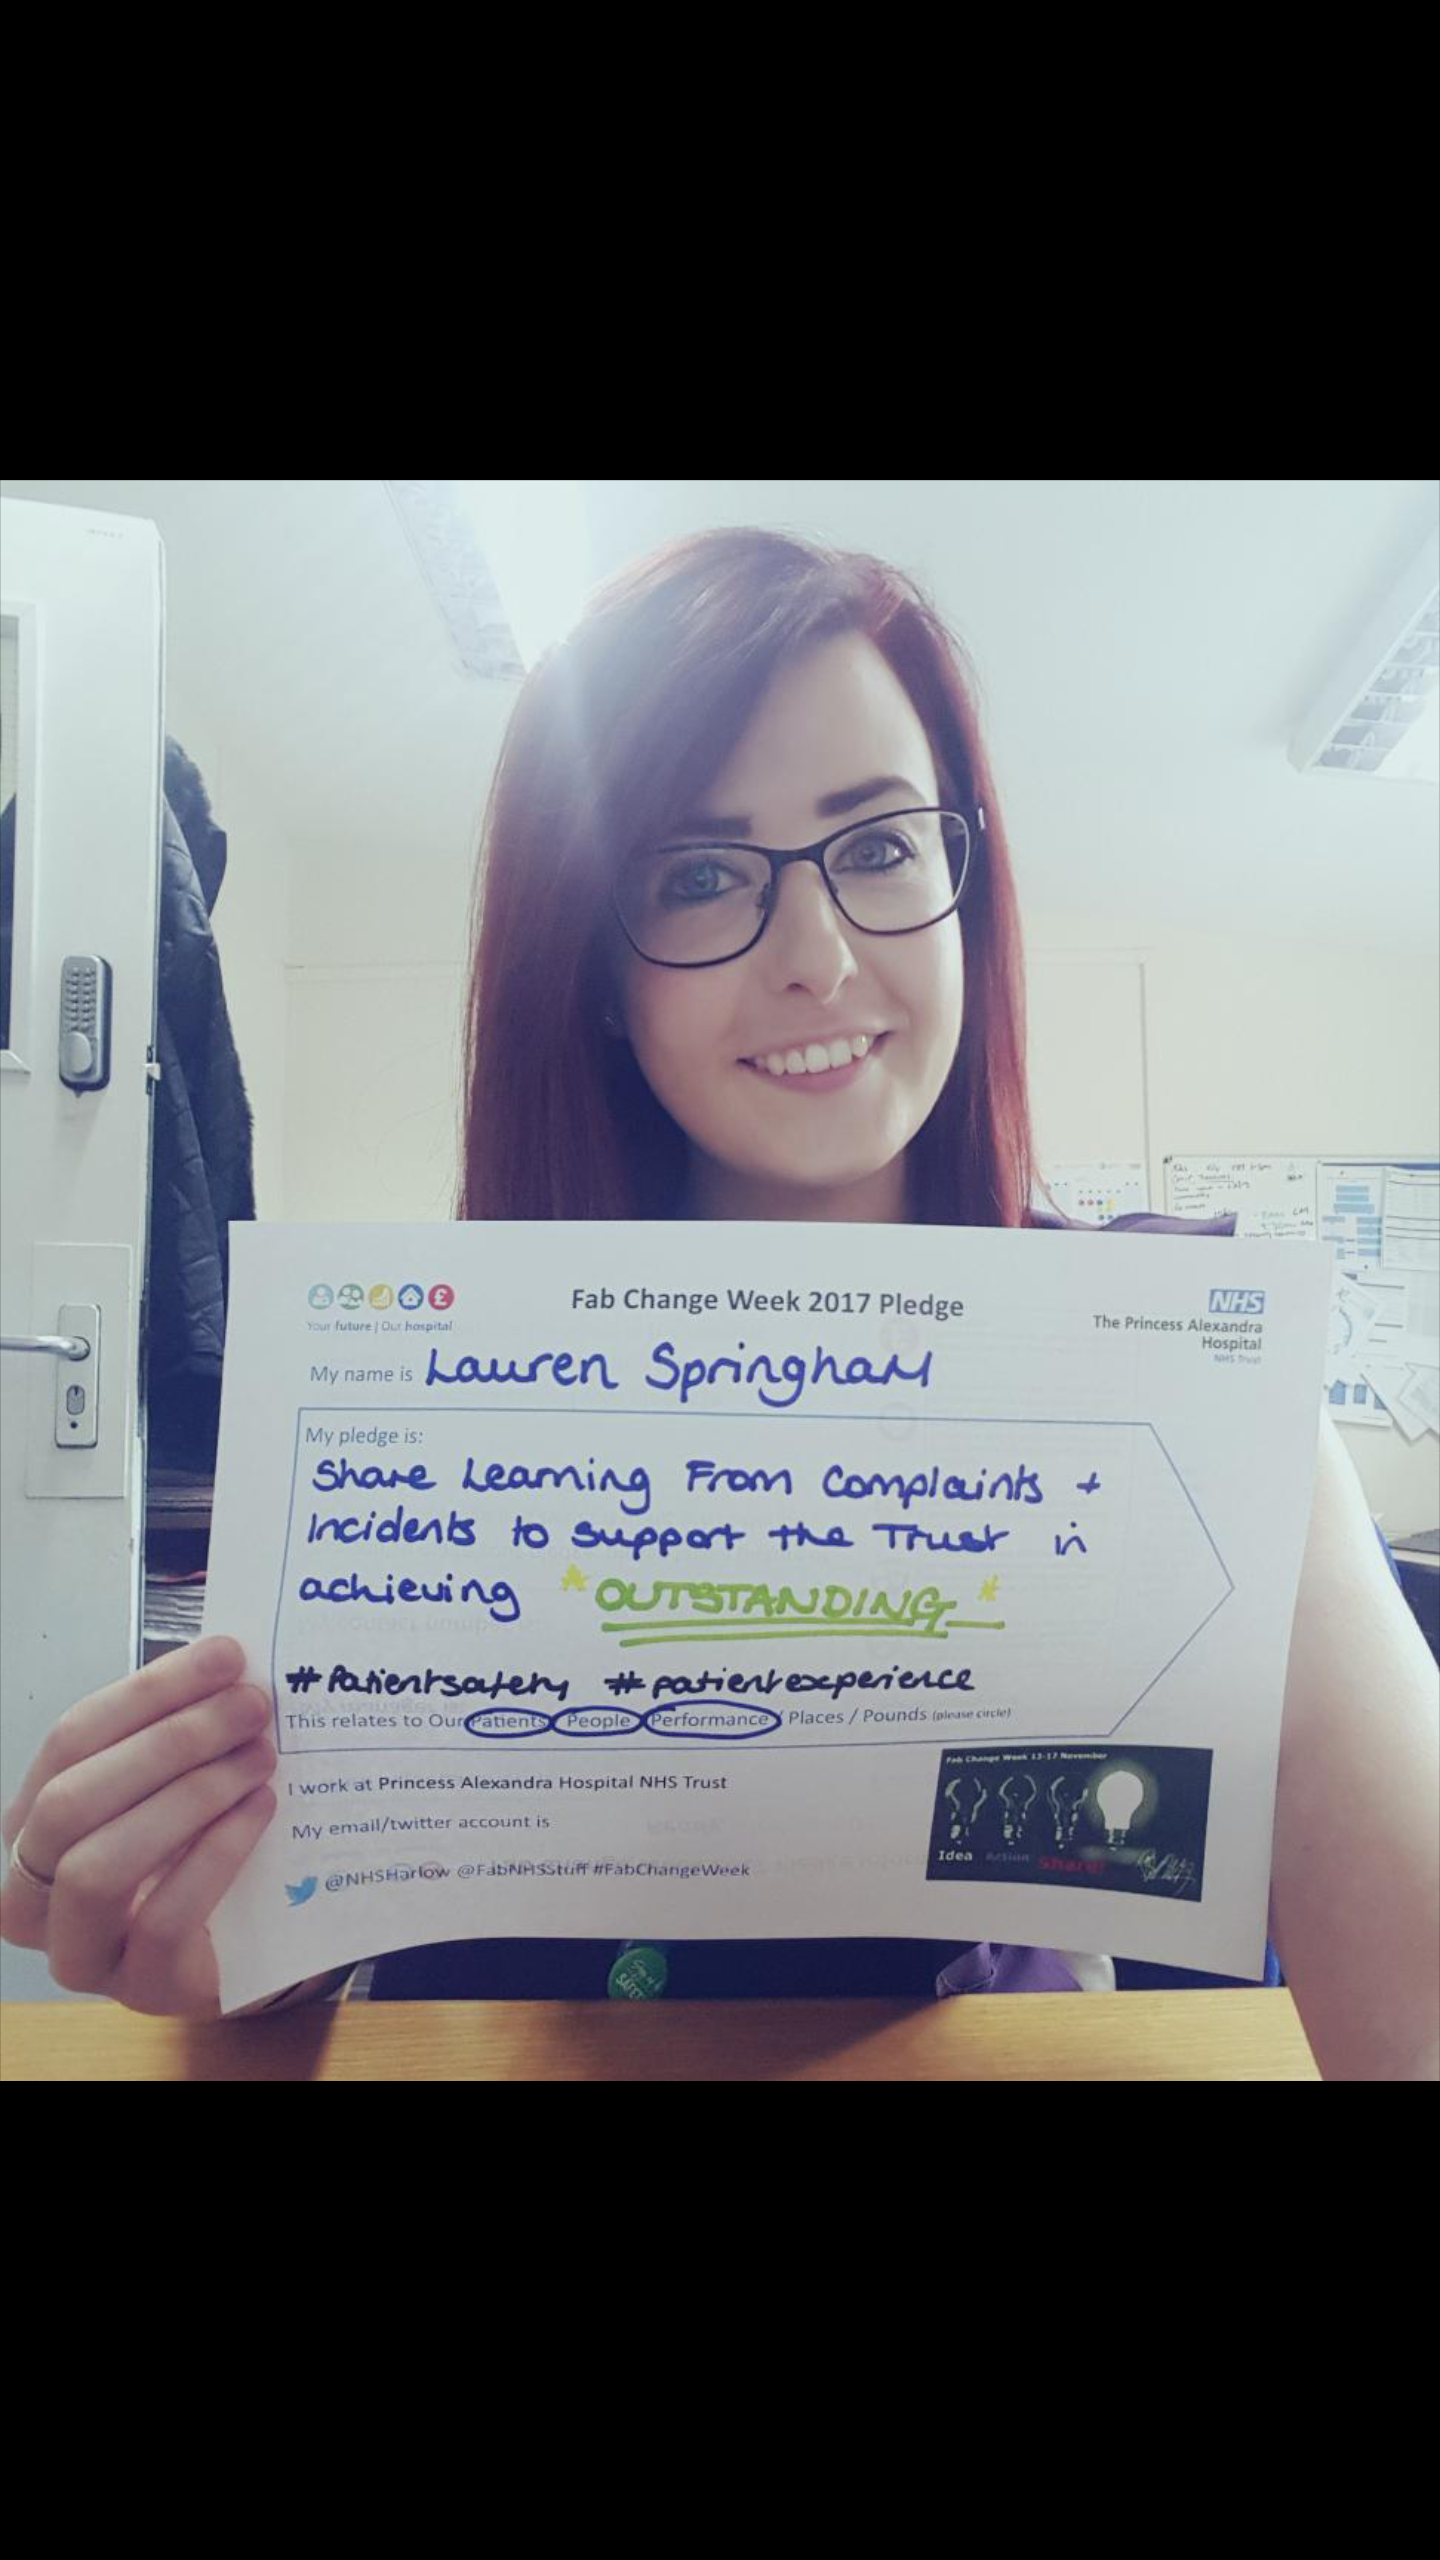 Fab Change Week 2017 Pledge
NHS
Your future | Our hospital
The Princess Alexandra
Hospital
NHS Trust
My name is Lauren Springham
My pledge is:
Share Learning From Complaints +
Incidents to support the Trust in
achieving *OUTSTANDING*
#Patientsafety #patientexperience
This relates to Our Patients People Performance / Places / Pounds (please circle)
I work at Princess Alexandra Hospital NHS Trust
My email/twitter account is
@NHSHarlow @FabNHSStuff #FabChangeWeek
Fab Change Week 13-17 November
Idea Action Share!